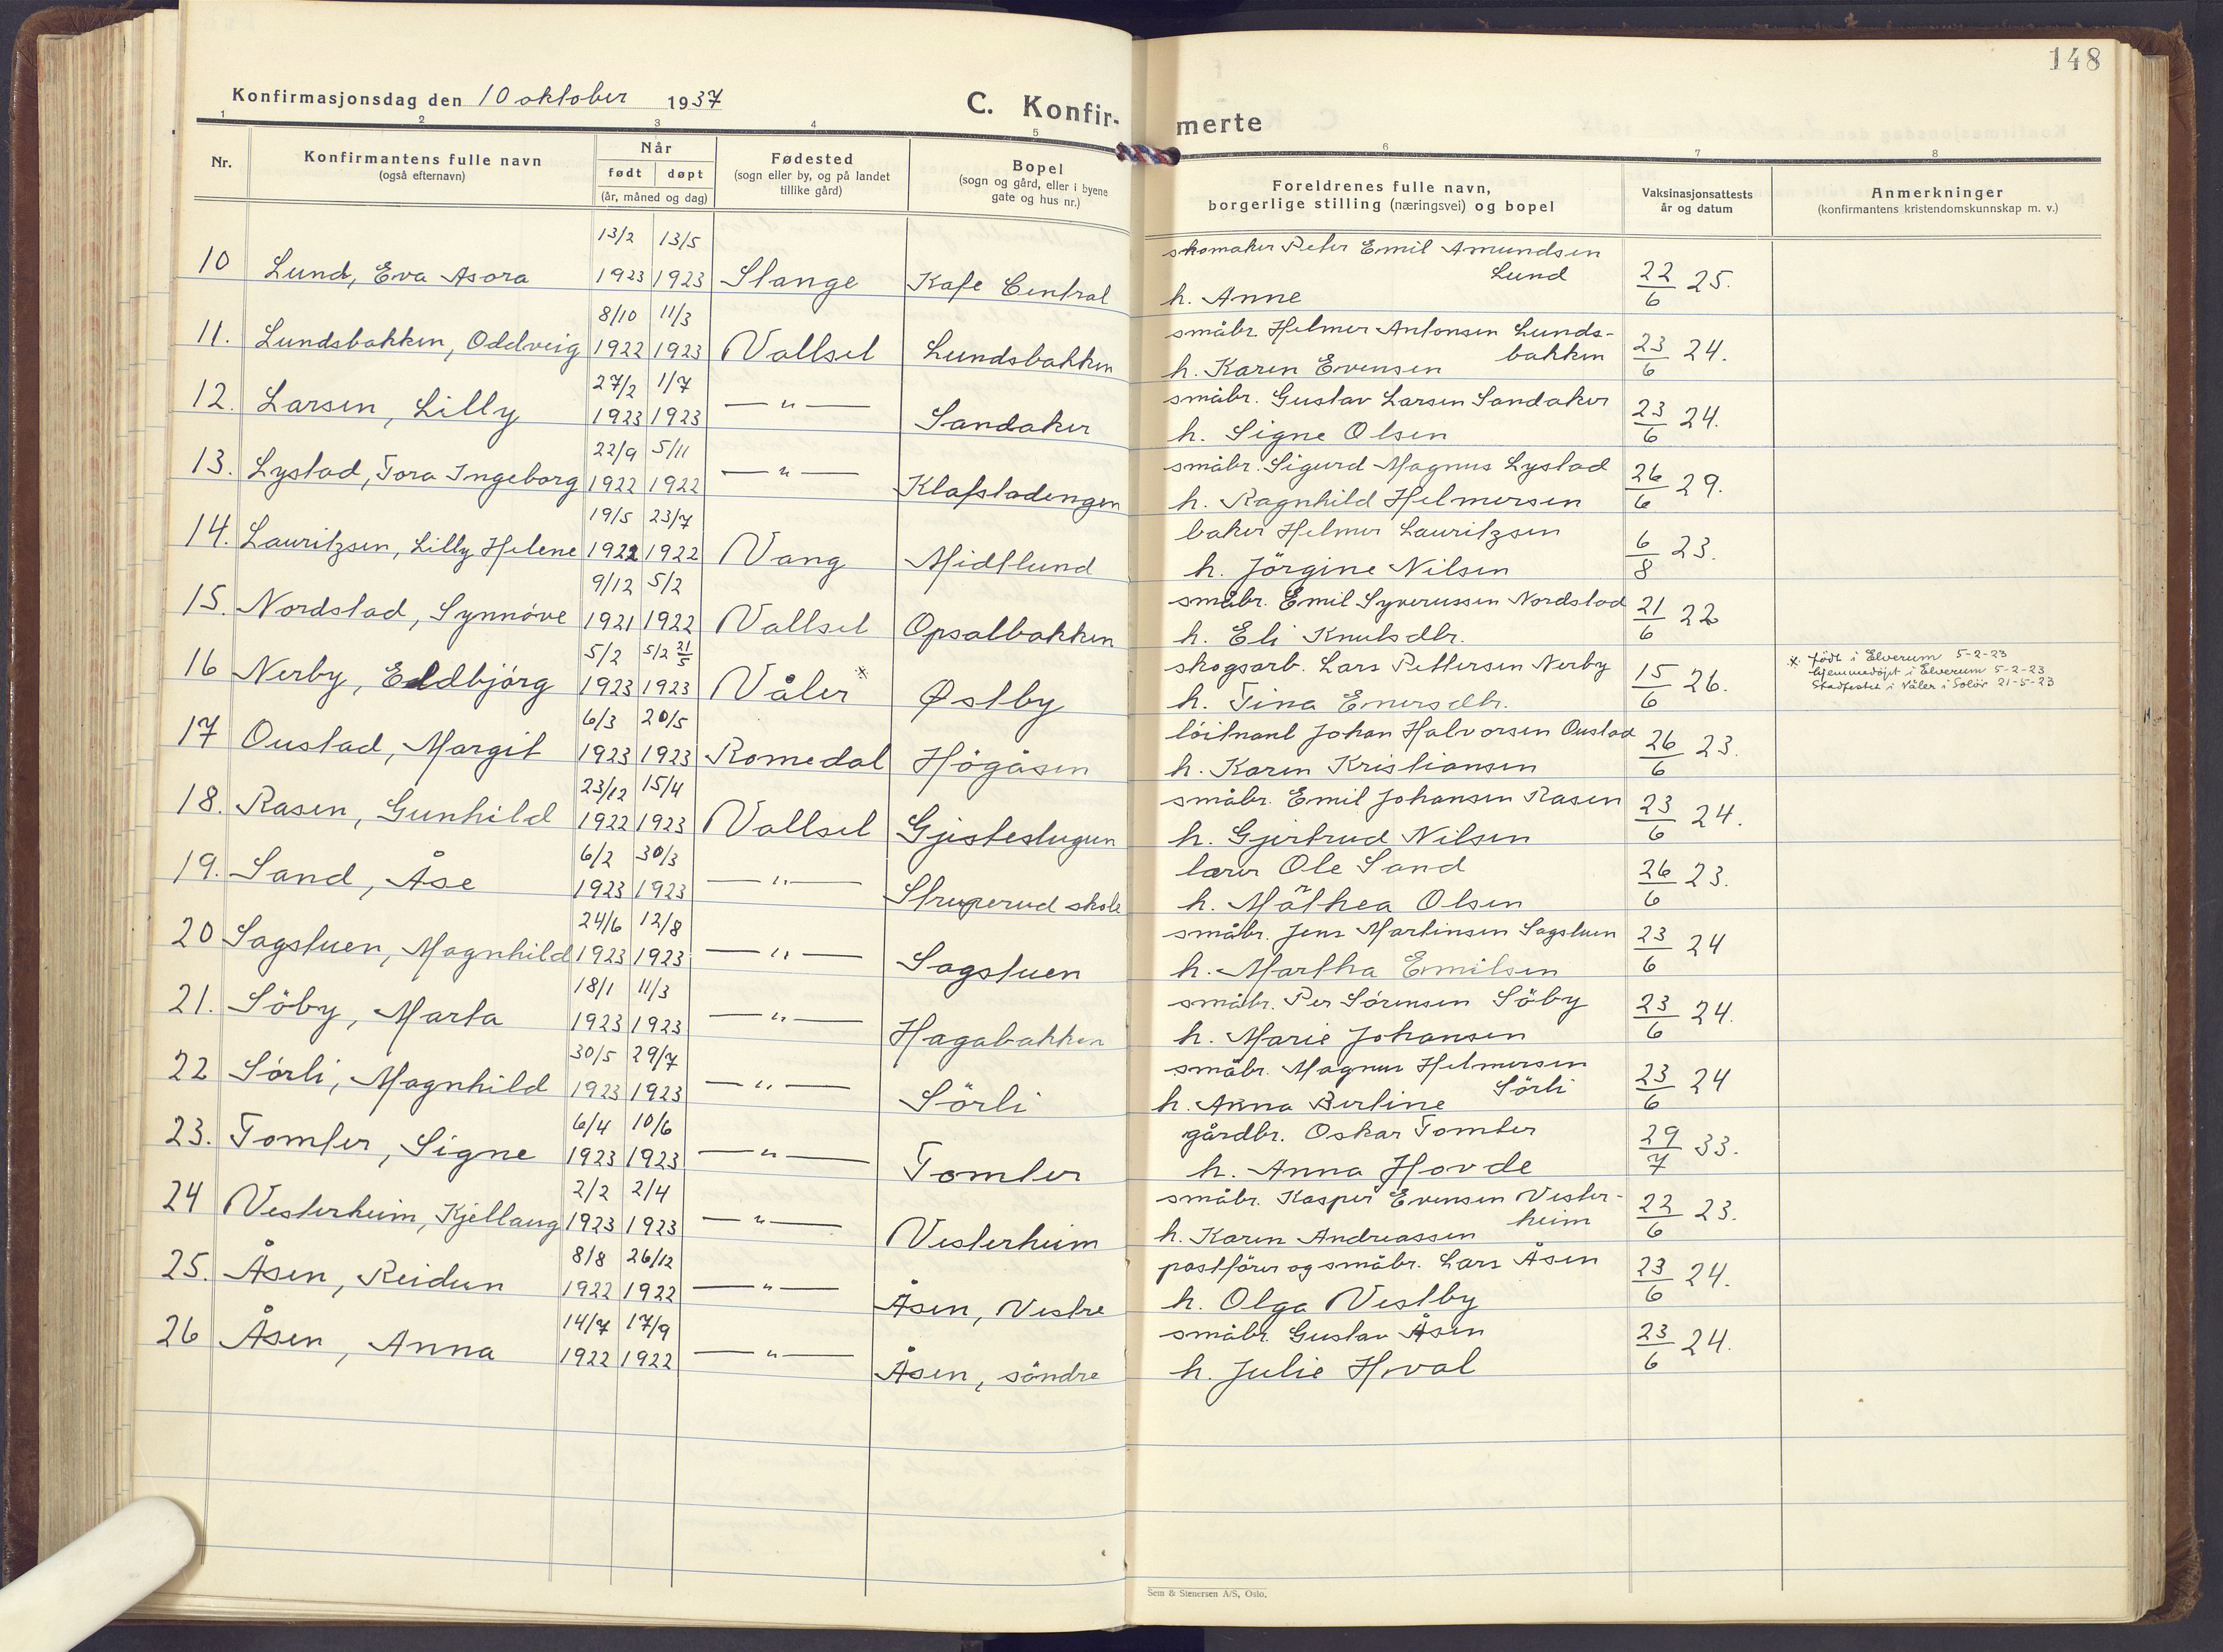 148
Konfirmasjonsdag den 10 oktober 1937
C. Konfir-
merte
1 2 3 4 5 6 7 8
Nr.
Konfirmantens fulle navn
(også efternavn)
Når
født døpt
(år, måned og dag)
Fødested
(sogn eller by, og på landet
tillike gård)
Bopel
(sogn og gård, eller i byene
gate og hus nr.)
Foreldrenes fulle navn,
borgerlige stilling (næringsvei) og bopel
Vaksinasjonsattests
år og datum
Anmerkninger
(konfirmantens kristendomskunnskap m. v.)
13/2 13/5 skomaker Peter Emil Amundsen
10 Lund, Eva Asora 1923 1923 Stange Kafe Central Lund 22/6 25.
h. Anne
8/10 11/3 småbr. Helmer Antonsen Lunds-
11. Lundsbakken, Oddveig 1922 1923 Vallset Lundsbakken bakken 23/6 24.
h. Karen Evensen
27/2 1/7 småbr. Gustav Larsen Sandaker
12. Larsen, Lilly 1923 1923 — " — Sandaker h. Signe Olsen 23/6 24.
22/9 5/11 småbr. Sigurd Magnus Lystad
13. Lystad, Tora Ingeborg 1922 1922 — " — Klafstadengen h. Ragnhild Helmersen 26/6 29.
19/5 23/7 baker Helmer Lauritzsen
14. Lauritzsen, Lilly Helene 1922 1922 Vang Midtlund h. Jörgine Nilsen 6/8 23.
9/12 5/2 småbr. Emil Syverussen Nordstad
15. Nordstad, Synnöve 1921 1922 Vallset Opsalbakken h. Eli Knutsdtr. 21/6 22
5/2 5/2 21/5 skogsarb. Lars Pettersen Nerby
16 Nerby, Eldbjörg 1923 1923 Våler * Østby h. Tina Enersdtr. 15/6 26.
* født i Elverum 5-2-23
hjemmedöpt i Elverum 5-2-23
Stadfestet i Våler i Solör 21-5-23
6/3 20/5 löitnant Johan Halvorsen Oustad
17 Oustad, Margit 1923 1923 Romedal Högåsen h. Karen Kristiansen 26/6 23.
23/12 15/4 småbr. Emil Johansen Rasen
18. Rasen, Gunhild 1922 1923 Vallset Gjestestugun h. Gjertrud Nilsen 23/6 24.
6/2 30/3 lærer Ole Sand
19. Sand, Åse 1923 1923 — " — Struperud skole h. Mathea Olsen 26/6 23.
24/6 12/8 småbr. Jens Martinsen Sagstuen
20 Sagstuen, Magnhild 1923 1923 — " — Sagstuen h. Martha Emilsen 23/6 24
18/1 11/3 småbr. Per Sörensen Söby
21. Söby, Marta 1923 1923 — " — Hagabakken h. Marie Johansen 23/6 24.
30/5 29/7 småbr. Magnus Helmersen
22 Sörli, Magnhild 1923 1923 — " — Sörli Sörli 23/6 24
h. Anna Bertine
6/4 10/6 gårdbr. Oskar Tomter
23. Tomter, Signe 1923 1923 — " — Tomter h. Anna Hovde 29/7 33.
2/2 2/4 småbr. Kasper Evensen Vester-
24 Vesterheim, Kjellaug 1923 1923 — " — Vesterheim heim 22/6 23.
h. Karen Andreassen
8/8 26/12 postförer og småbr. Lars Åsen
25. Åsen, Reidun 1922 1922 — " — Åsen, Vestre h. Olga Vestby 23/6 24.
14/7 17/9 småbr. Gustav Åsen
26 Åsen, Anna 1922 1922 — " — Åsen, söndre h. Julie Hval 23/6 24.
Sem & Stenersen A/S, Oslo.